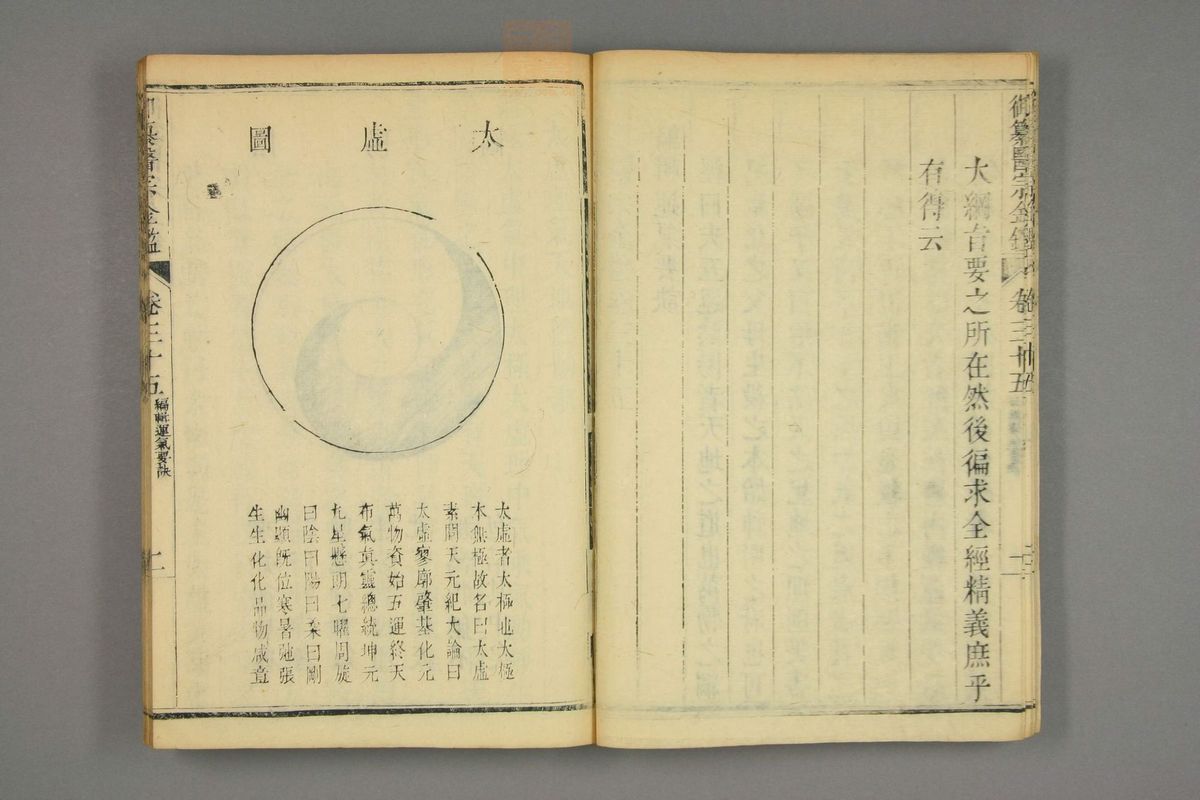 御纂醫宗金鑑
卷三十五
大綱旨要之所在然後徧求全經精義庶乎
有得云
太虛圖
太虛者太極也太極
本無極故名曰太虛
素問天元紀大論曰
太虛寥廓肇基化元
萬物資始五運終天
布氣真靈總統坤元
九星懸朗七曜周旋
曰陰曰陽曰柔曰剛
幽顯既位寒暑弛張
生生化化品物咸章
御纂醫宗金鑑
卷三十五
編輯運氣要訣